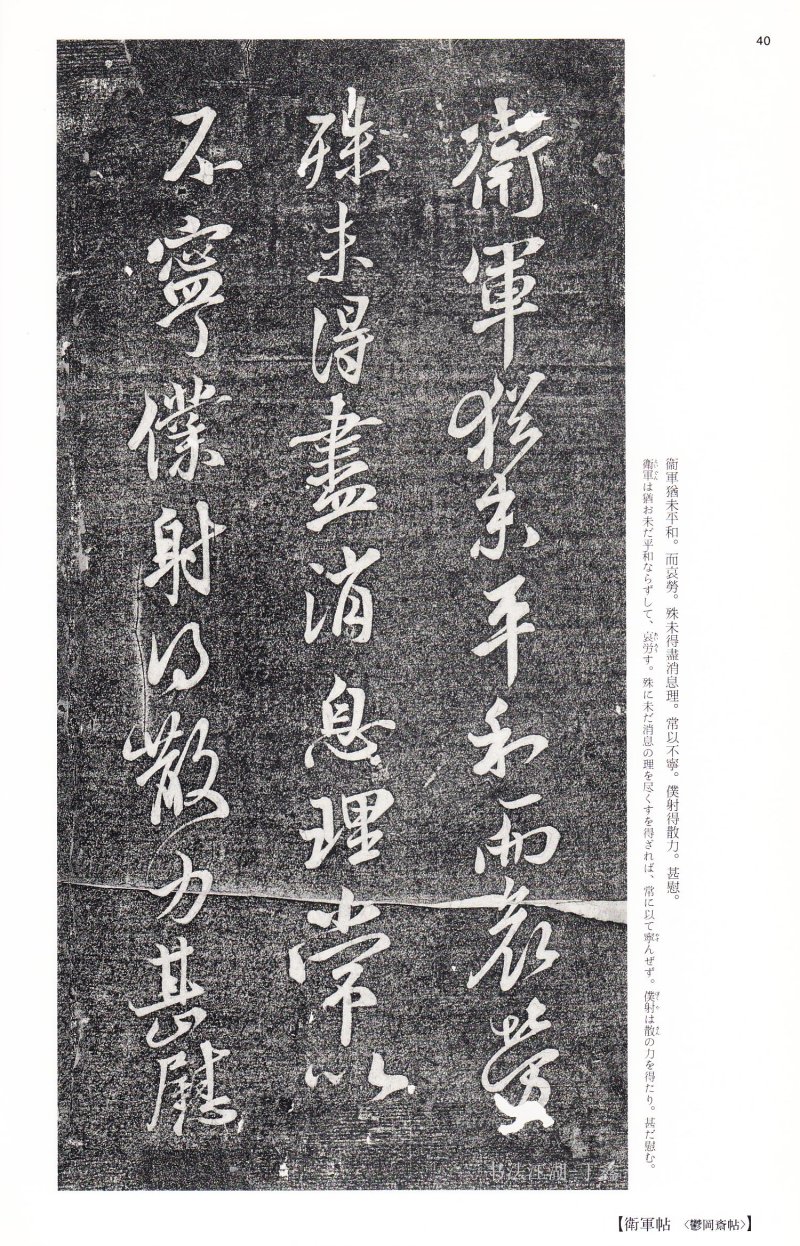 40
衛軍猶未平和。而哀勞。殊未得盡消息理。常以不寧。僕射得散力。甚慰。
衛軍は猶お未だ平和ならずして、哀労す。殊に未だ消息の理を尽くすを得ざれば、常に以て寧んぜず。僕射は散の力を得たり。甚だ慰む。
衛軍猶未平和而哀勞
殊未得盡消息理常以
不寧僕射得散力甚慰
【衛軍帖 〈鬱岡齋帖〉】